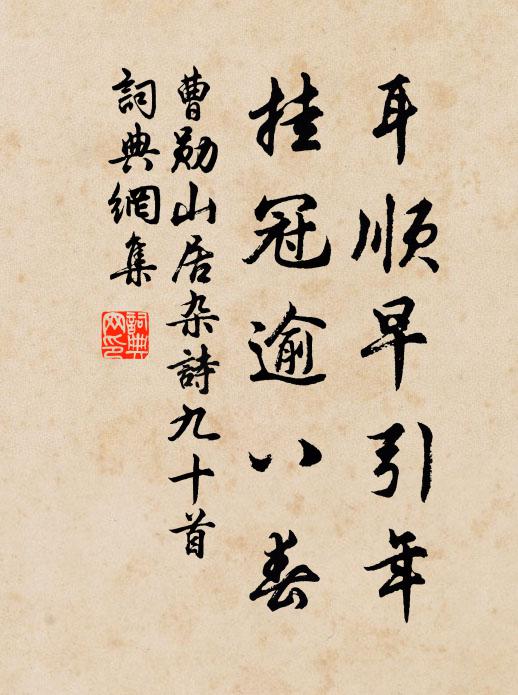 耳順早引年
挂冠逾八春
曹勛山居杂詩九十首
詞典網集
詞典
网印